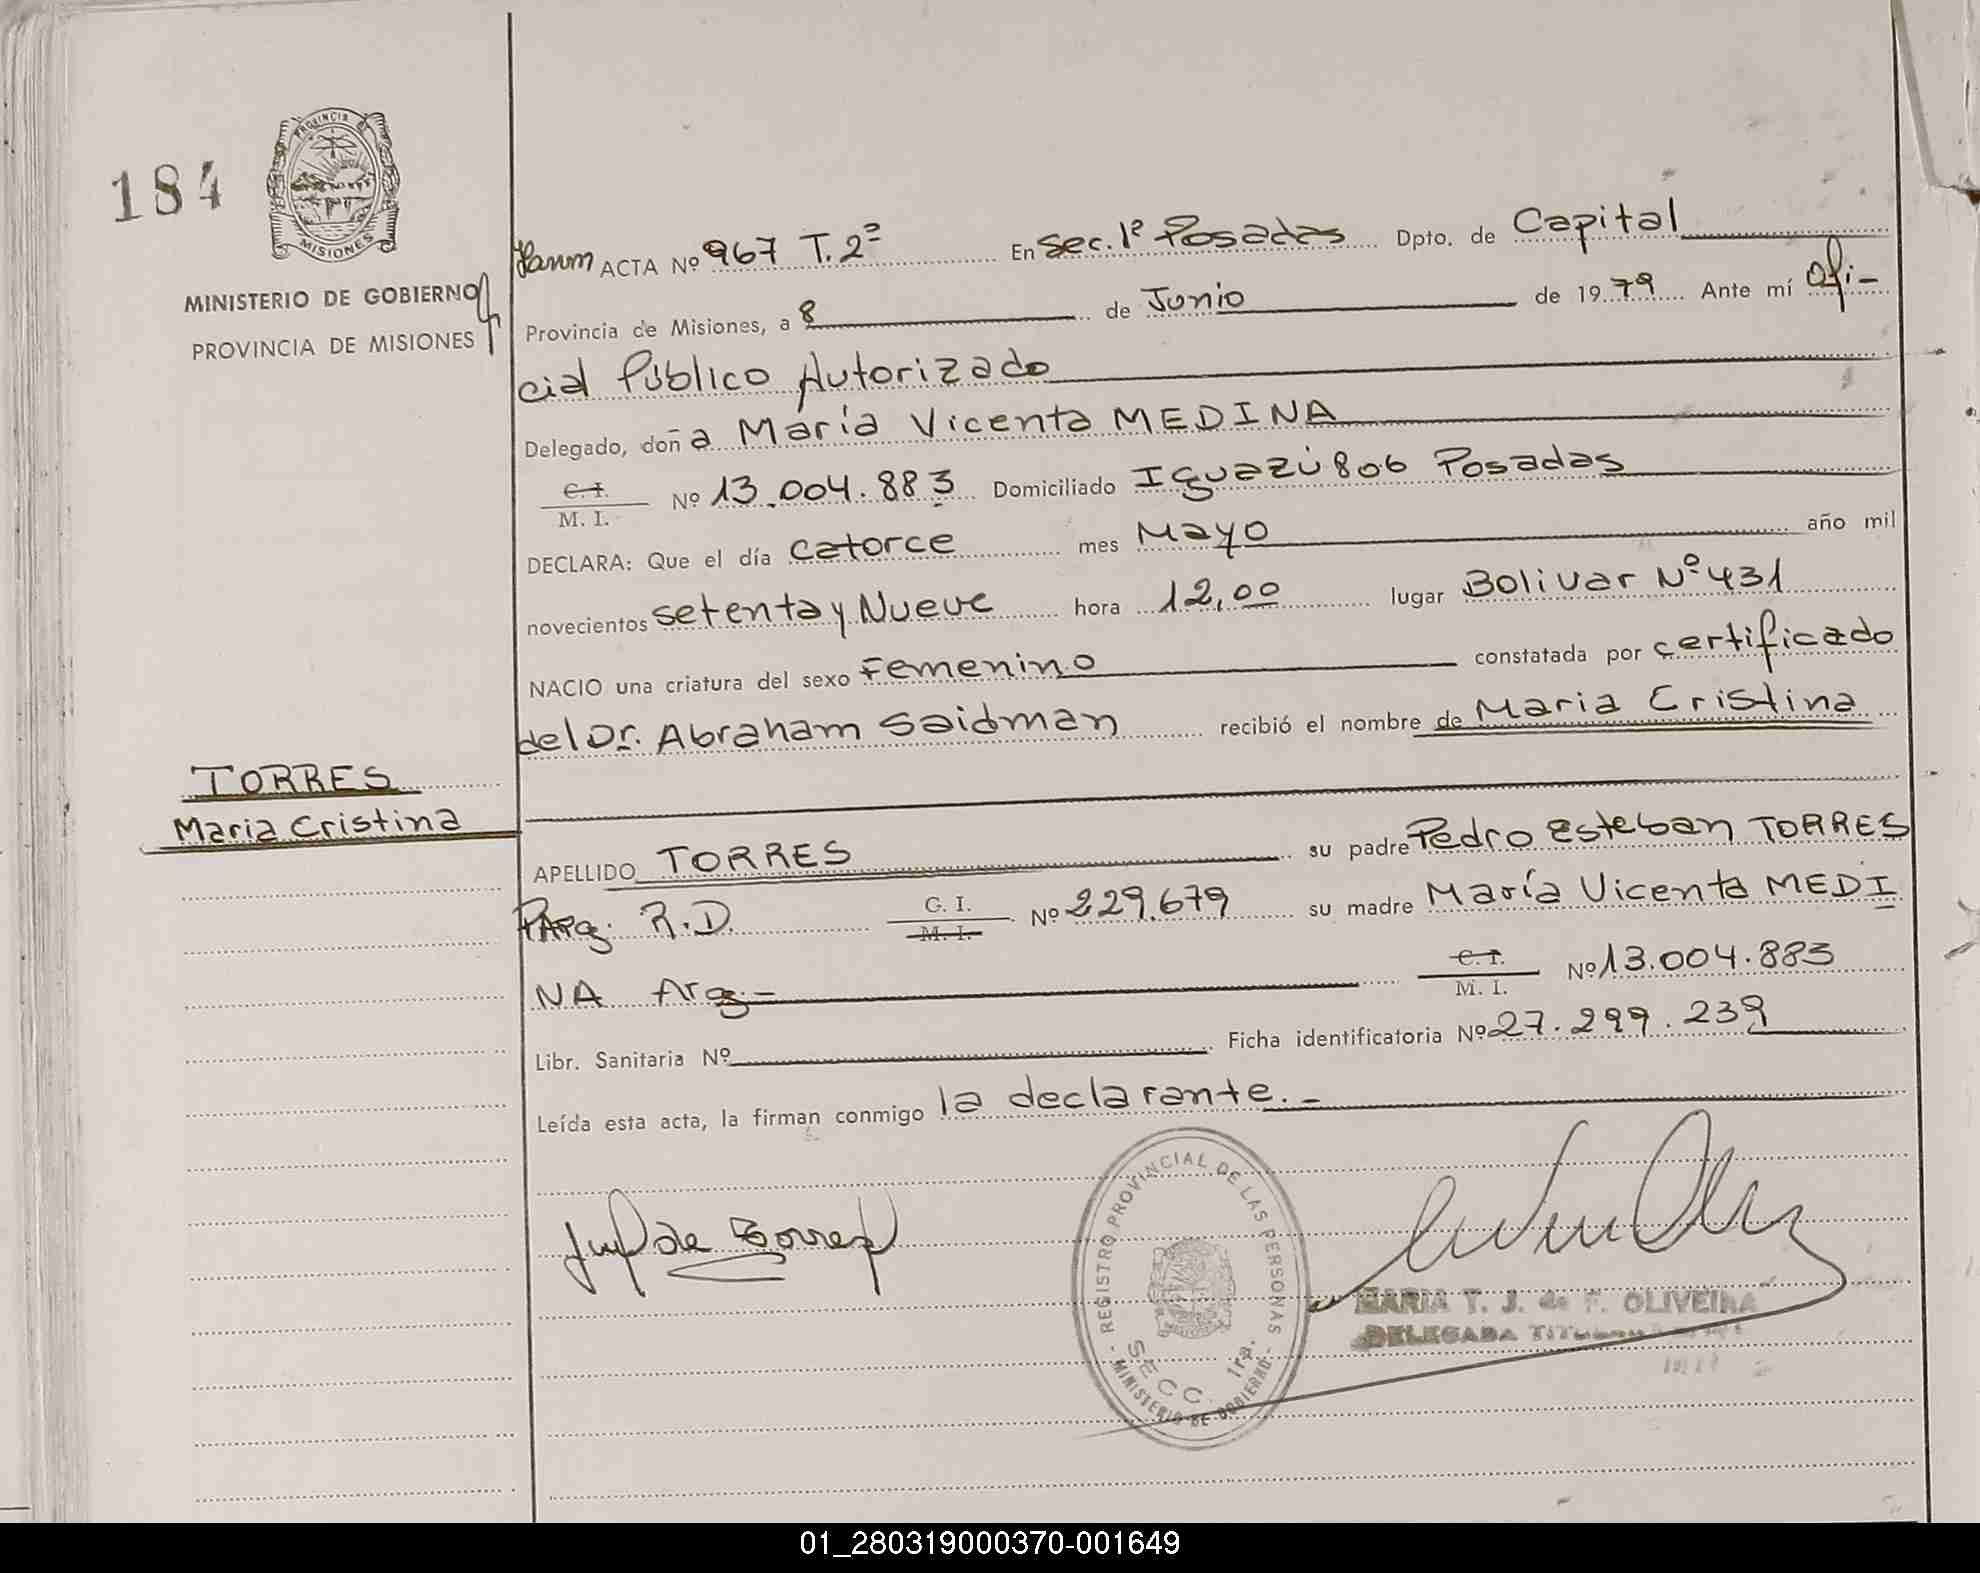 184
PROVINCIA DE
MISIONES
MINISTERIO DE GOBIERNO
PROVINCIA DE MISIONES
TORRES
Maria Cristina
ACTA Nº 967 T.2º En Sec. 1º Posadas Dpto. de Capital
Provincia de Misiones, a 8 de Junio de 1979 Ante mí Ofi-
cial Público Autorizado
Delegado, doña María Vicenta MEDINA
C. I.
M. I. Nº 13.004.883 Domiciliado Iguazú 806 Posadas
DECLARA: Que el día catorce mes Mayo año mil
novecientos setenta y Nueve hora 12,00 lugar Bolivar Nº 431
NACIO una criatura del sexo Femenino constatada por certificado
del Dr. Abraham Saidman recibió el nombre de Maria Cristina
APELLIDO TORRES su padre Pedro Esteban TORRES
PARg. R.D. C. I. Nº 229.679 su madre María Vicenta MEDI
M. I.
NA Arg.- C. I. Nº 13.004.883
M. I.
Libr. Sanitaria Nº Ficha identificatoria Nº 27.299.239
Leída esta acta, la firman conmigo la declarante.-
de Torres
REGISTRO PROVINCIAL DE LAS PERSONAS
SECC. 1ra.
- MINISTERIO DE GOBIERNO -
MARIA T. J. de F. OLIVEIRA
DELEGADA TITULAR
01_280319000370-001649